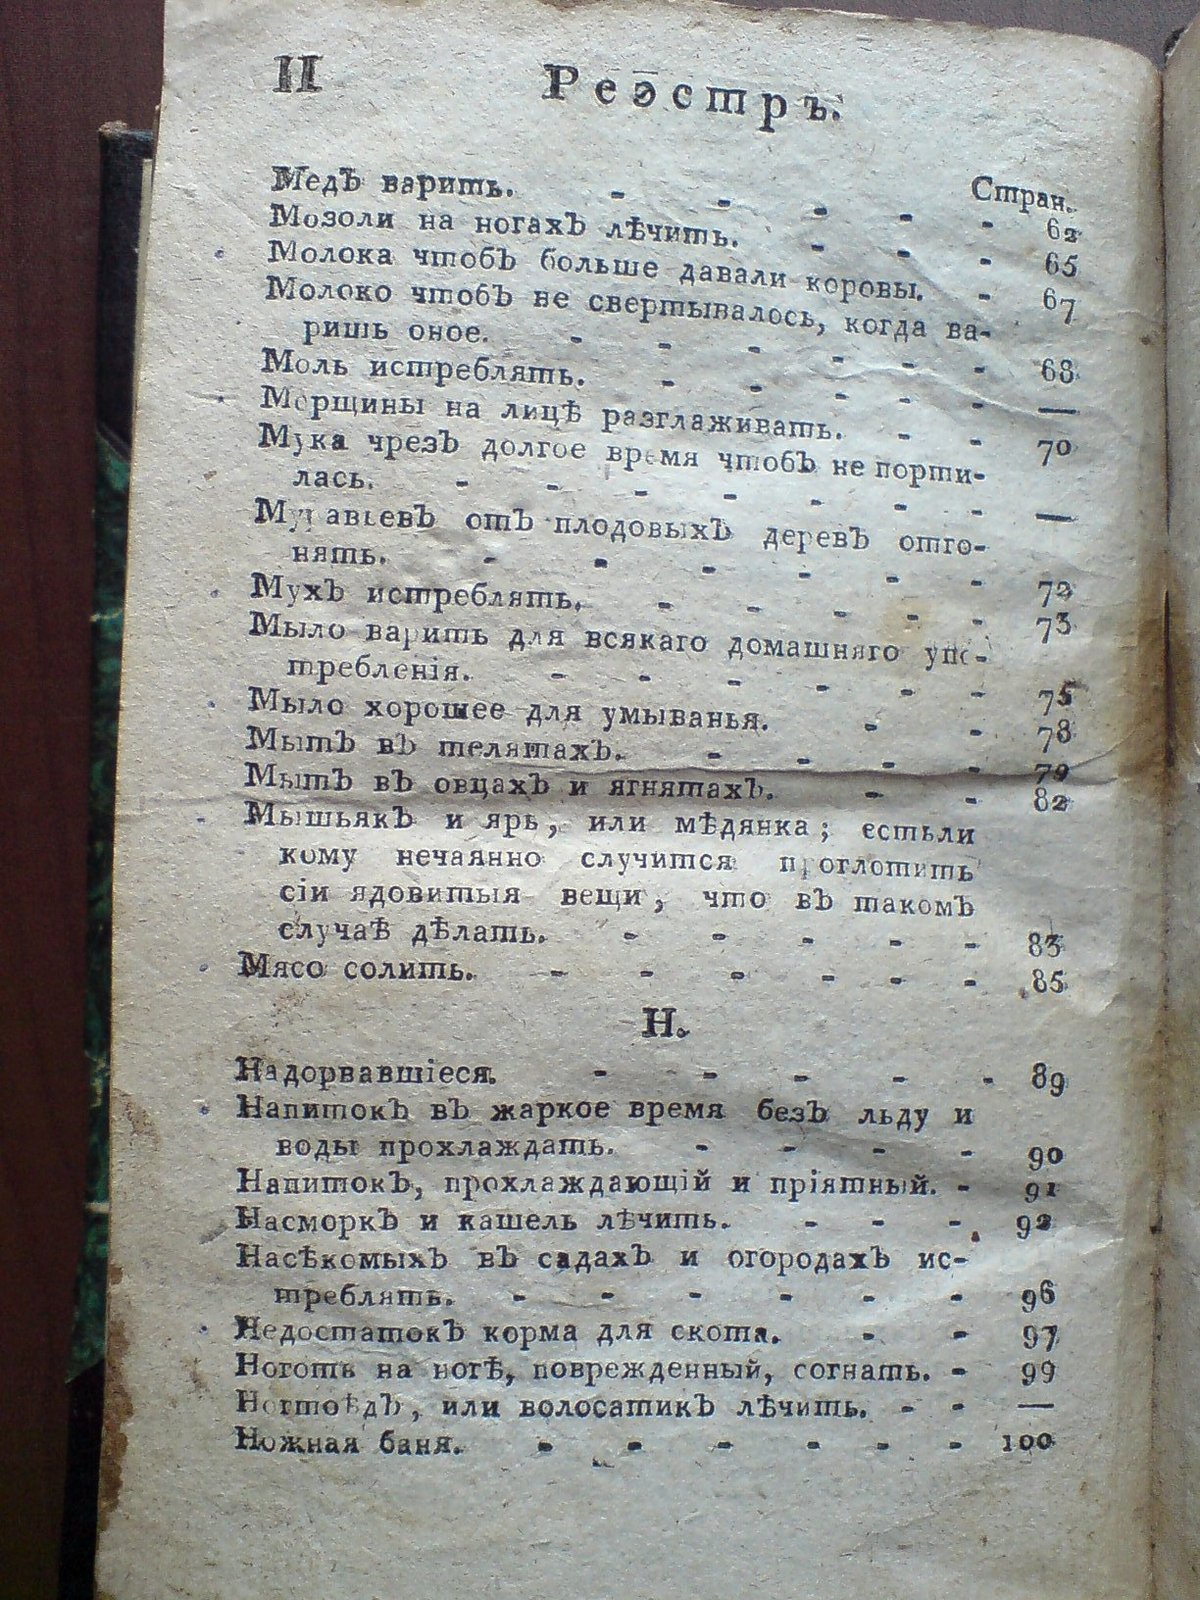 II
Реэстръ.
Стран.
Медъ варить. - - - - - 62
Мозоли на ногахъ лѣчить. - - - 65
Молока чтобъ больше давали коровы. - 67
Молоко чтобъ не свертывалось, когда ва-
ришь оное. - - - - - - 68
Моль истреблять. - - - - - —
Морщины на лицѣ разглаживать. - - 70
Мука чрезъ долгое время чтобъ не порти-
лась. - - - - - - - —
Муравьевъ отъ плодовыхъ деревъ отго-
нять. - - - - - - 72
Мухъ истреблять. - - - - - 73
Мыло варить для всякаго домашняго упо-
требленія. - - - - - - 75
Мыло хорошее для умыванья. - - 78
Мытъ въ телятахъ. - - - - 79
Мытъ въ овцахъ и ягнятахъ. - - 82
Мышьякъ и ярь, или мѣдянка; естьли
кому нечаянно случится проглотить
сіи ядовитыя вещи, что въ такомъ
случаѣ дѣлать. - - - - - 83
Мясо солить. - - - - - 85
Н.
Надорвавшіеся. - - - - - 89
Напитокъ въ жаркое время безъ льду и
воды прохлаждать. - - - - 90
Напитокъ, прохлаждающій и пріятный. - 91
Насморкъ и кашель лѣчить. - - - 92
Насѣкомыхъ въ садахъ и огородахъ ис-
треблять. - - - - - - 96
Недостатокъ корма для скота. - - 97
Ноготь на ногѣ, поврежденный, согнать. - 99
Ногтоѣдъ, или волосатикъ лѣчить. - - —
Ножная баня. - - - - - - 100